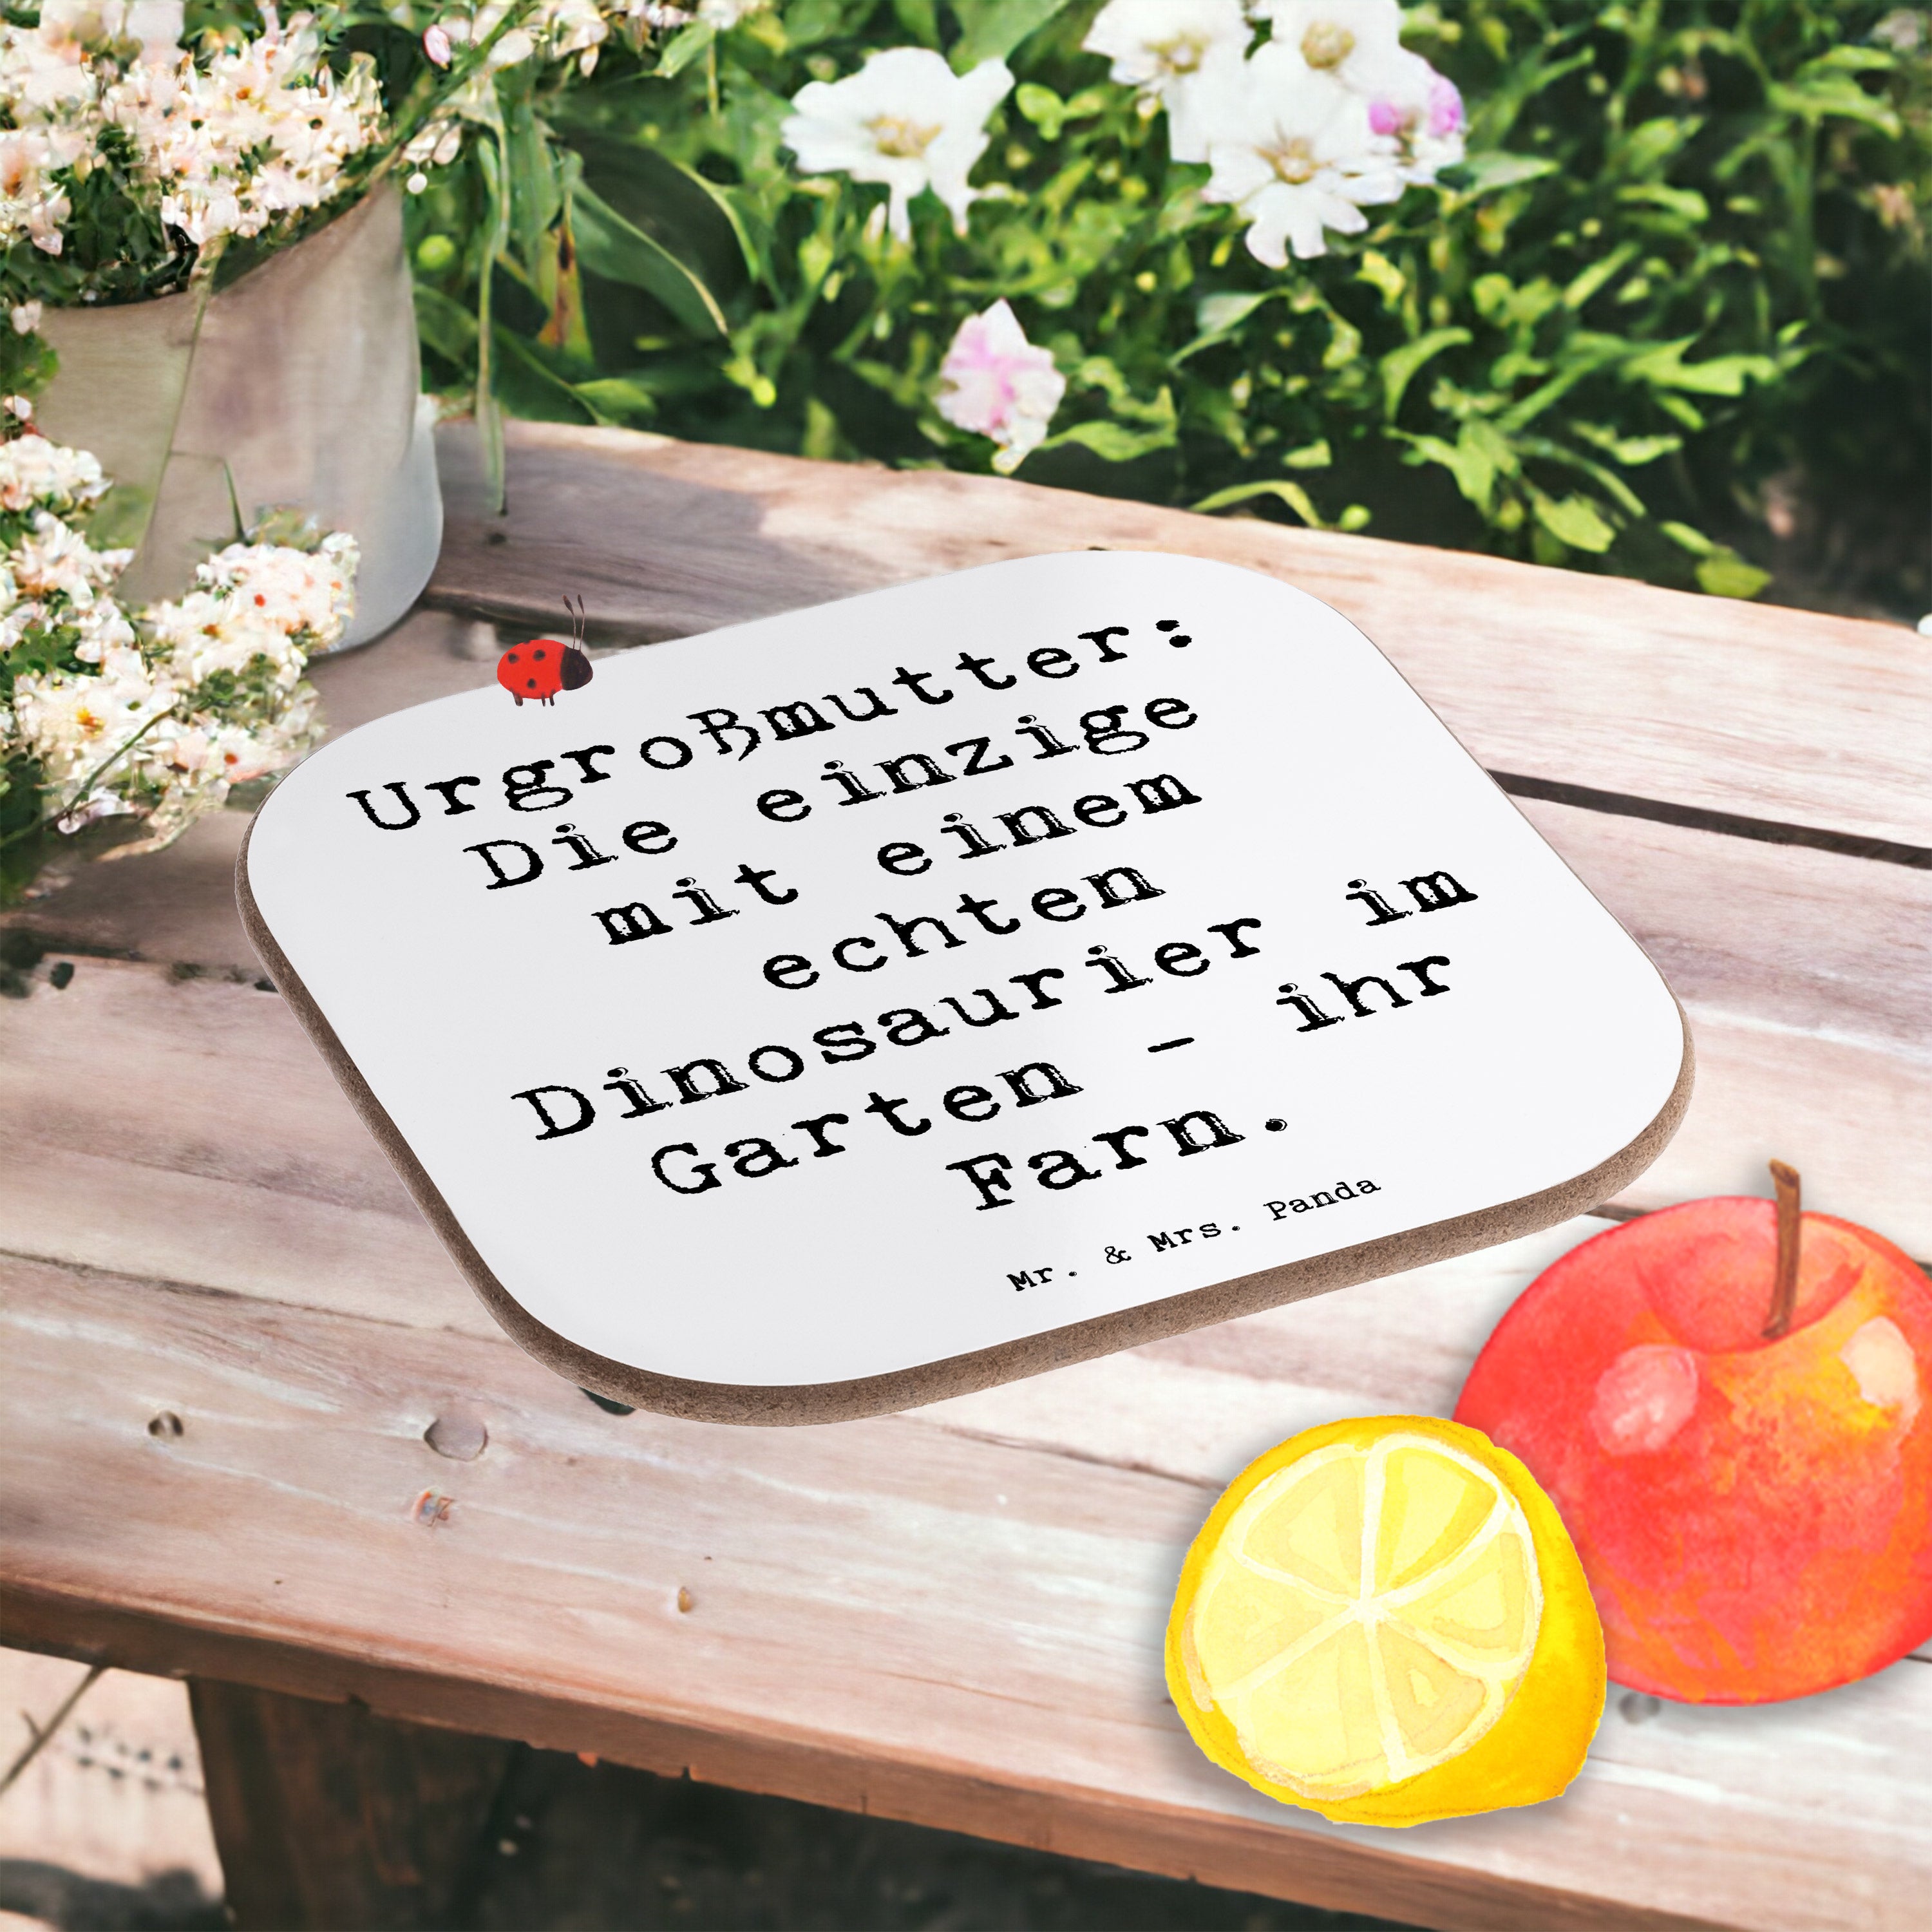 Urgroßmutter:
Die einzige
mit einem
echten
Dinosaurier im
Garten - ihr
Farn.
Mr. & Mrs. Panda